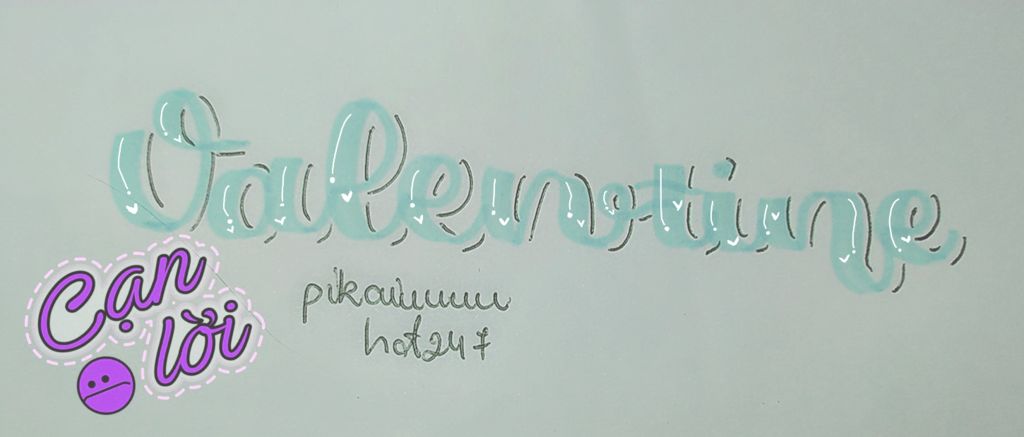 Valentine
pikaiuuuu
hot247
Cạn
lời